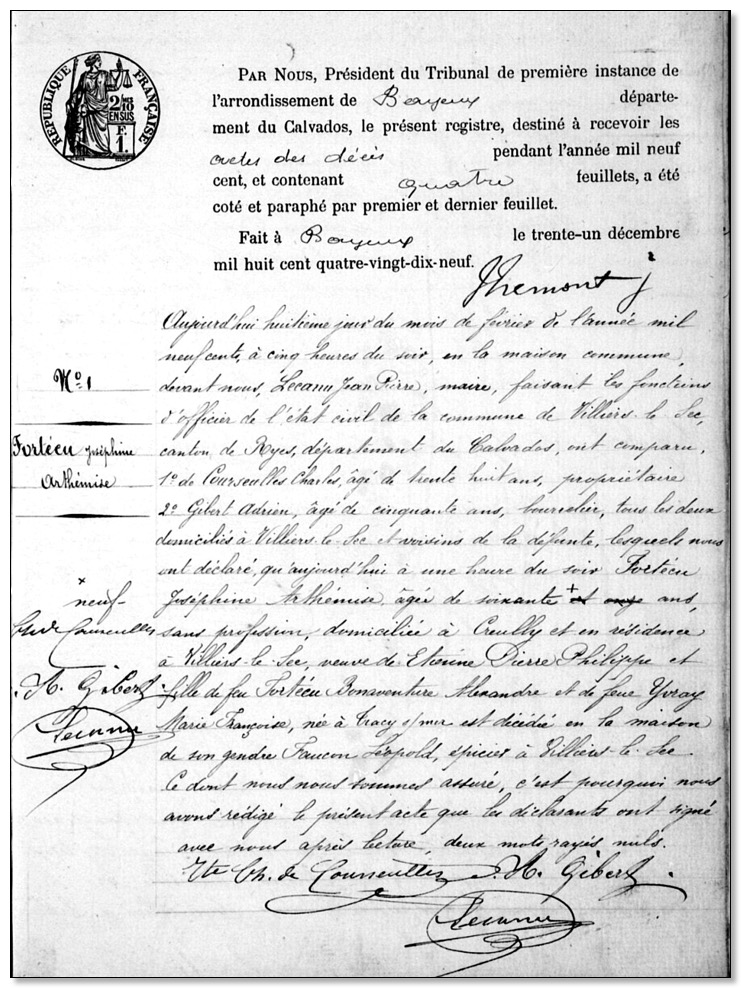 RÉPUBLIQUE FRANÇAISE
2/10
EN SUS
F.
1
PAR NOUS, Président du Tribunal de première instance de
l'arrondissement de Bayeux départe-
ment du Calvados, le présent registre, destiné à recevoir les
actes des décès pendant l'année mil neuf
cent, et contenant quatre feuillets, a été
coté et paraphé par premier et dernier feuillet.
Fait à Bayeux le trente-un décembre
mil huit cent quatre-vingt-dix-neuf.
Aujourd'hui huitième jour du mois de février de l'année mil
neuf cent, à cinq heures du soir, en la maison commune,
devant nous, Lecanu Jean Pierre, maire, faisant les fonctions
d'officier de l'état civil de la commune de Villiers-le-Sec,
canton de Ryes, département du Calvados, ont comparu,
1º de Courseulles Charles, âgé de trente huit ans, propriétaire
2º Gibert Adrien, âgé de cinquante ans, bourrelier, tous les deux
domiciliés à Villiers-le-Sec et voisins de la défunte, lesquels nous
ont déclaré, qu'aujourd'hui à une heure du soir Fortécu
Joséphine Arthémise, âgée de soixante + et onze ans,
sans profession, domiciliée à Creully et en résidence
à Villiers-le-Sec, veuve de Etienne Pierre Philippe et
fille de feu Fortécu Bonaventure Alexandre et de feue Yvray
Marie Françoise, née à Tracy s/mer est décédée en la maison
de son gendre Faucon Léopold, épicier à Villiers-le-Sec
Ce dont nous nous sommes assuré, c'est pourquoi nous
avons rédigé le présent acte que les déclarants ont signé
avec nous après lecture, deux mots rayés nuls.
Vte Ch. de Courseulles A. Gibert
Lecanu
Nº 1
Fortécu Joséphine
Arthémise
+ neuf
de Courseulles
A. Gibert
Lecanu